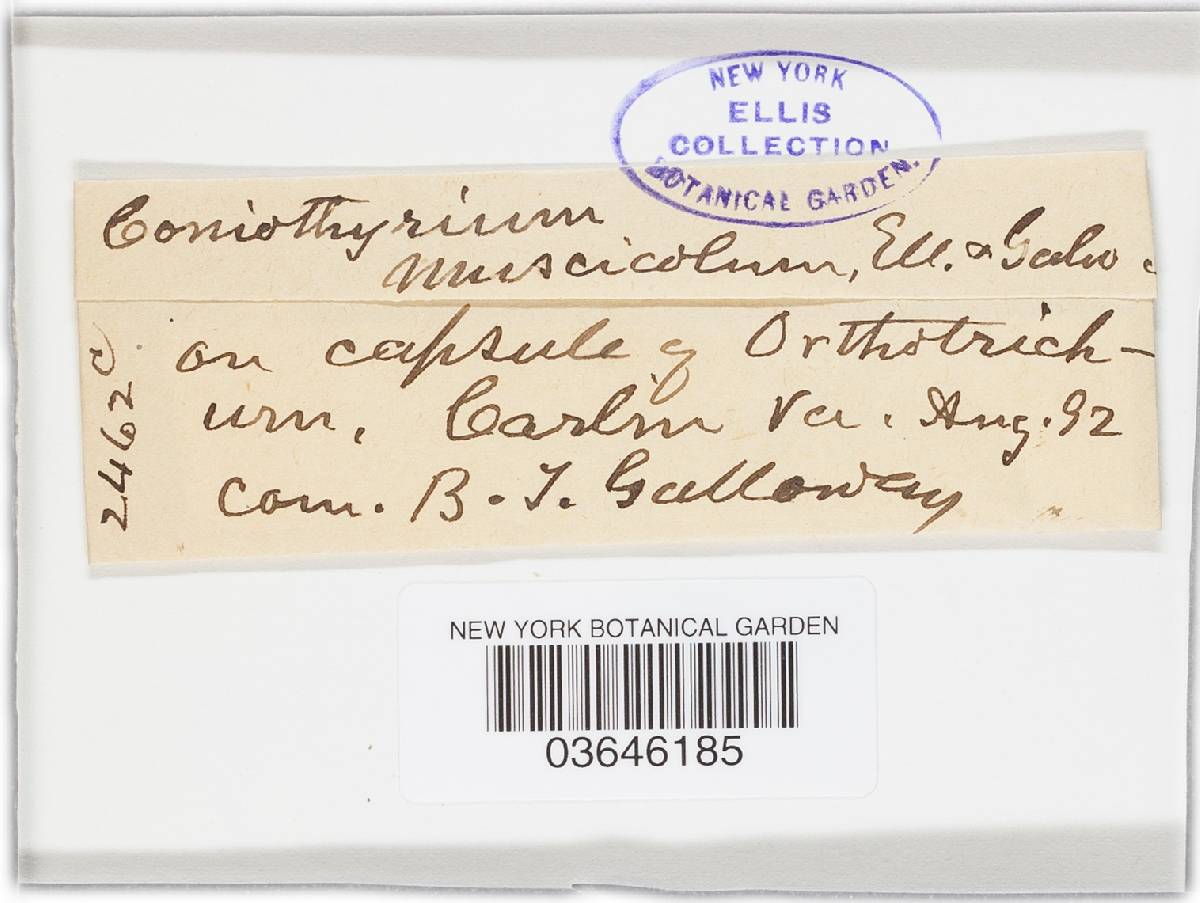 NEW YORK
ELLIS
COLLECTION
BOTANICAL GARDEN.
Coniothyrium
muscicolum, Ell. &
on capsule of Orthotrich-
um, Va. Aug. 92
com. B. T. Galloway
2462
NEW YORK BOTANICAL GARDEN
03646185